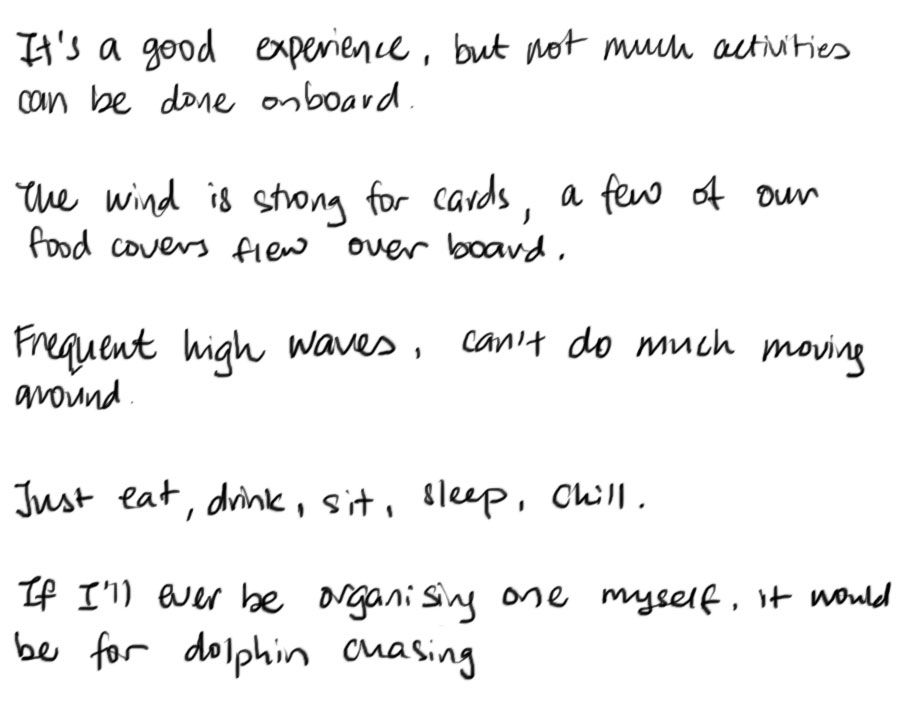 It's a good experience, but not much activities
can be done onboard.
The wind is strong for cards, a few of our
food covers flew over board.
Frequent high waves, can't do much moving
around.
Just eat, drink, sit, sleep, chill.
If I'll ever be organising one myself, it would
be for dolphin chasing